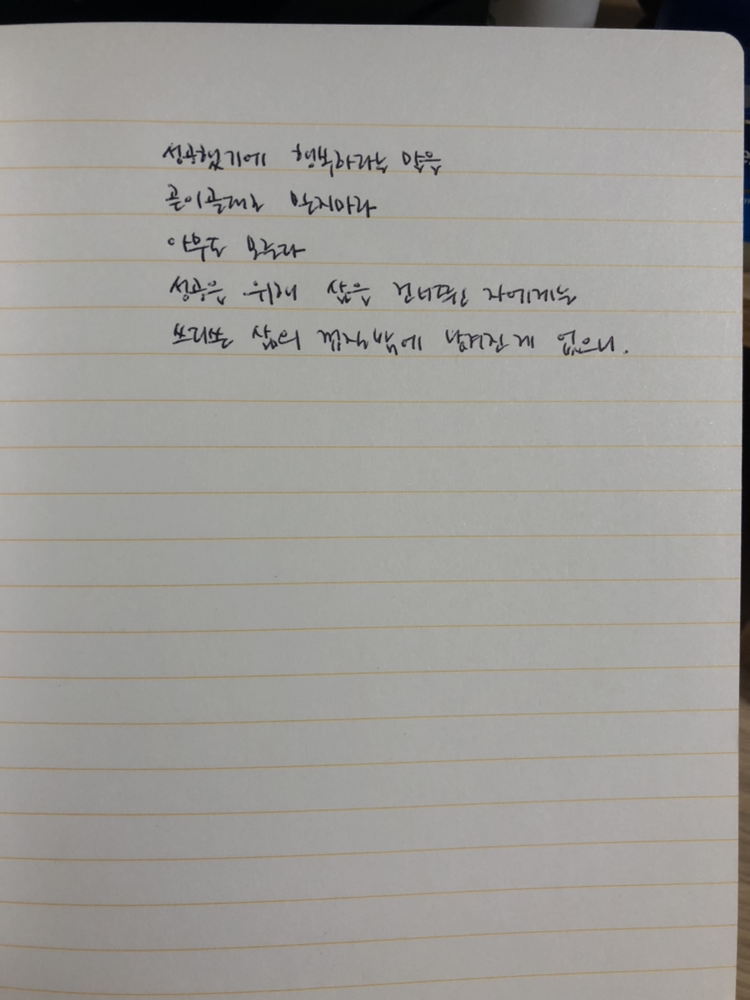 성공했기에 행복하라는 말을
곧이곧대로 믿지마라
아무도 모른다
성공을 위해 삶을 건너뛴 자에게는
쓰디쓴 삶의 껍질밖에 남겨진 게 없으니.